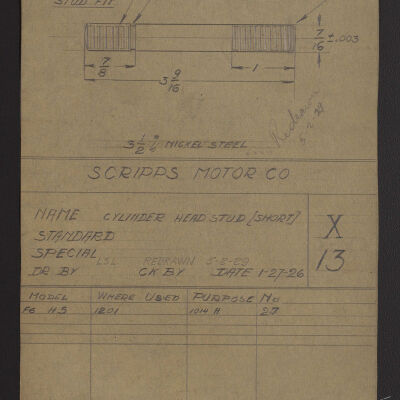 STUD FIT
7/16 ±.003
7/8
1
3 9/16
Redrawn
5-2-29
3 1/2 % NICKEL STEEL
SCRIPPS MOTOR CO
NAME CYLINDER HEAD STUD [SHORT]
STANDARD
SPECIAL
X
13
LSL REDRAWN 5-2-29
DR BY CK BY DATE 1-27-26
MODEL WHERE USED PURPOSE NO
F6 H.S 1201 1014 H 27